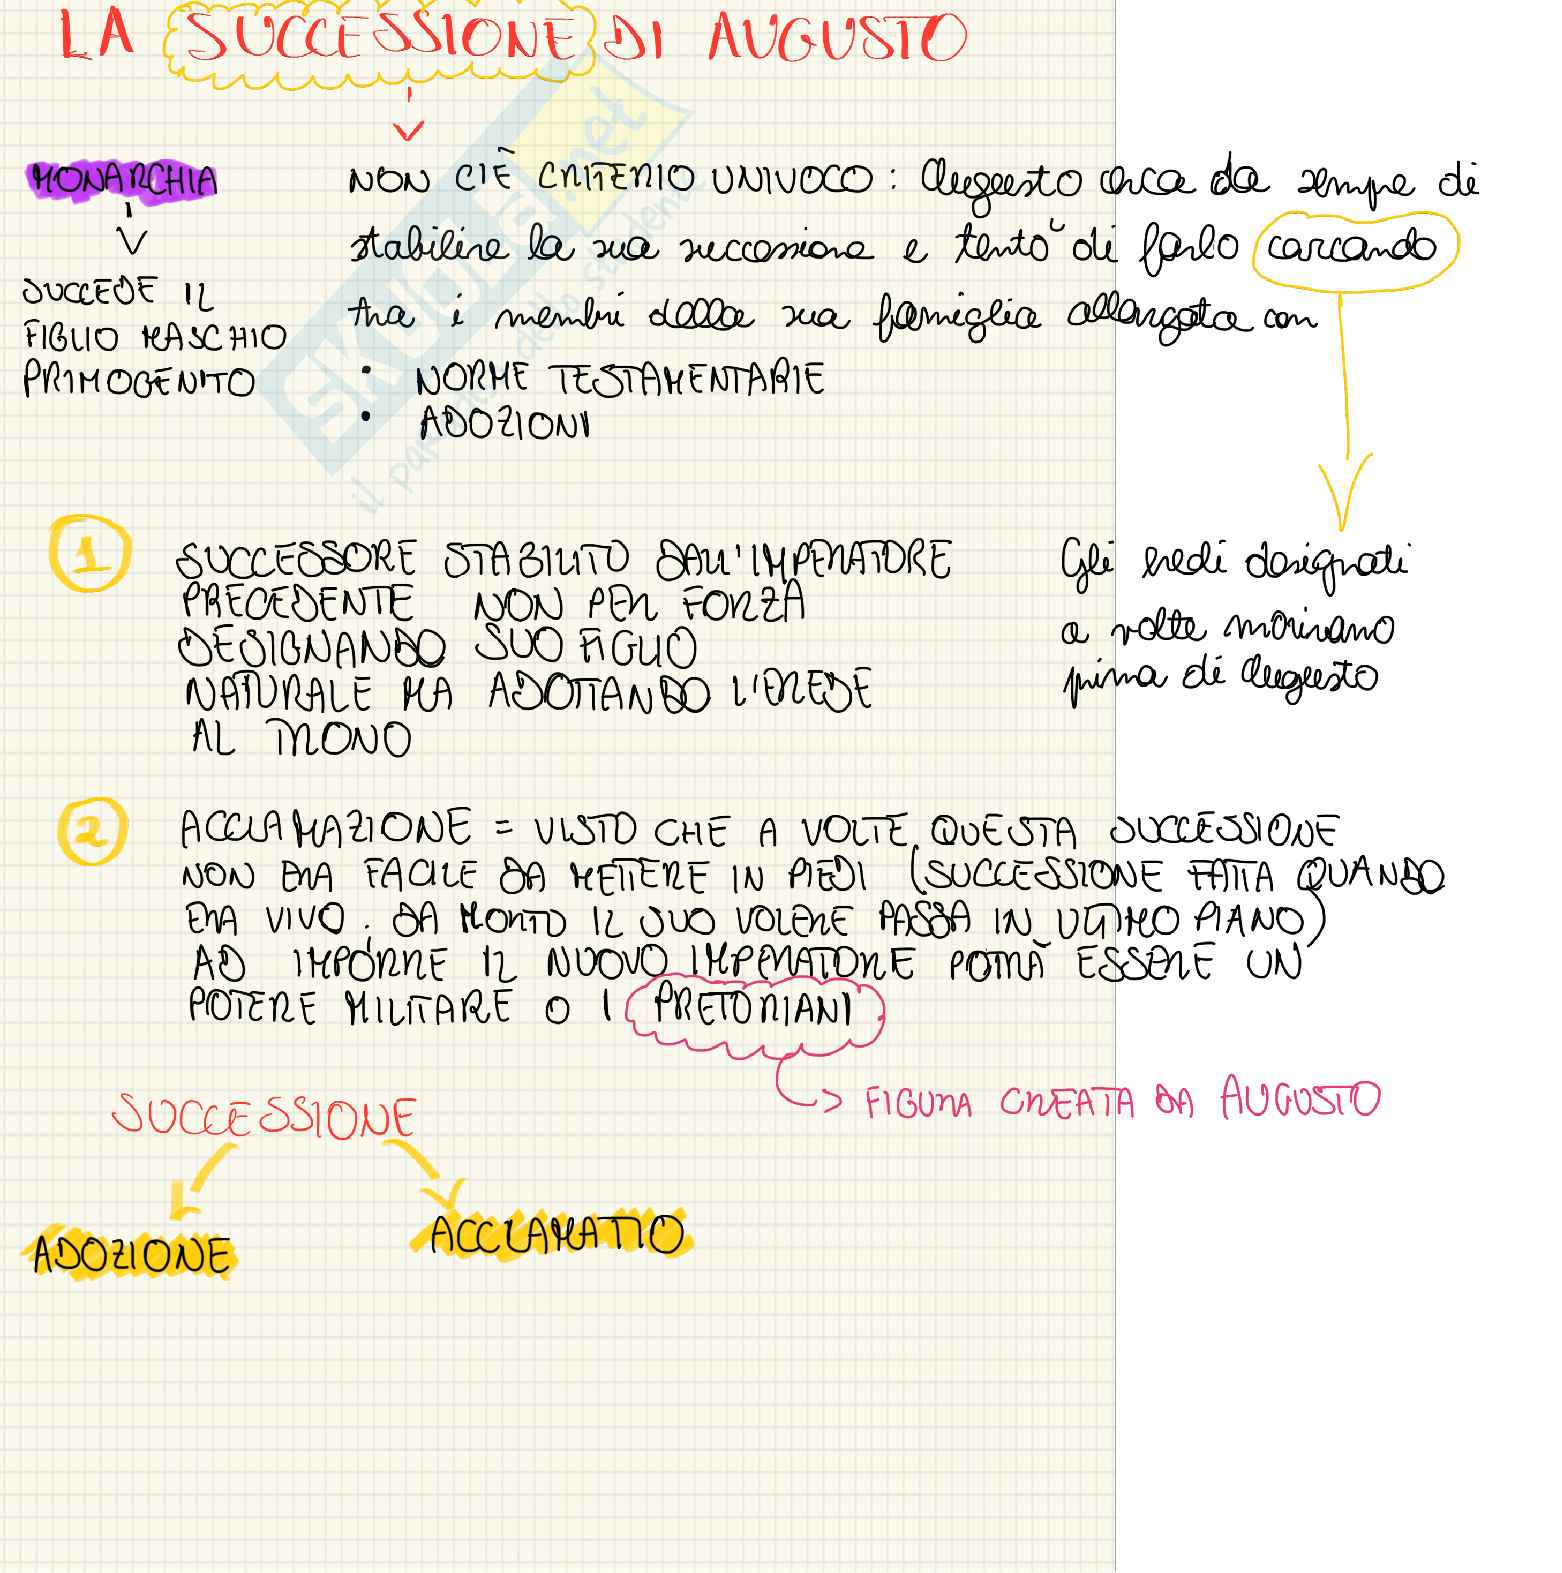 LA SUCCESSIONE DI AUGUSTO
MONARCHIA
SUCCEDE IL
FIGLIO MASCHIO
PRIMOGENITO
NON C'È CRITERIO UNIVOCO: Augusto cerca da sempre di
stabilire la sua successione e tentò di farlo cercando
tra i membri della sua famiglia allargata con
• NORME TESTAMENTARIE
• ADOZIONI
1
SUCCESSORE STABILITO DALL'IMPERATORE
PRECEDENTE NON PER FORZA
DESIGNANDO SUO FIGLIO
NATURALE MA ADOTTANDO L'EREDE
AL TRONO
Gli eredi designati
a volte morivano
prima di Augusto
2
ACCLAMAZIONE = VISTO CHE A VOLTE QUESTA SUCCESSIONE
NON ERA FACILE DA METTERE IN PIEDI (SUCCESSIONE FATTA QUANDO
ERA VIVO. DA MORTO IL SUO VOLERE PASSA IN ULTIMO PIANO)
AD IMPORRE IL NUOVO IMPERATORE POTRÀ ESSERE UN
POTERE MILITARE O I PRETORIANI
FIGURA CREATA DA AUGUSTO
SUCCESSIONE
ADOZIONE
ACCLAMATIO
SKUOLA.net